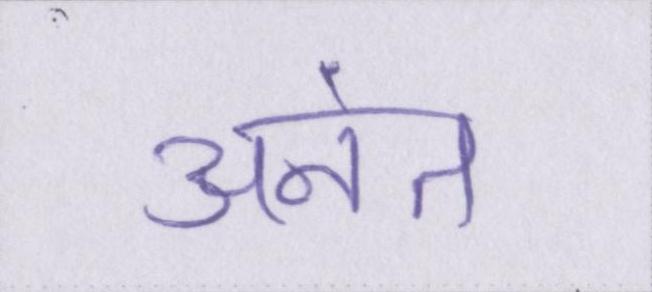 अनंत